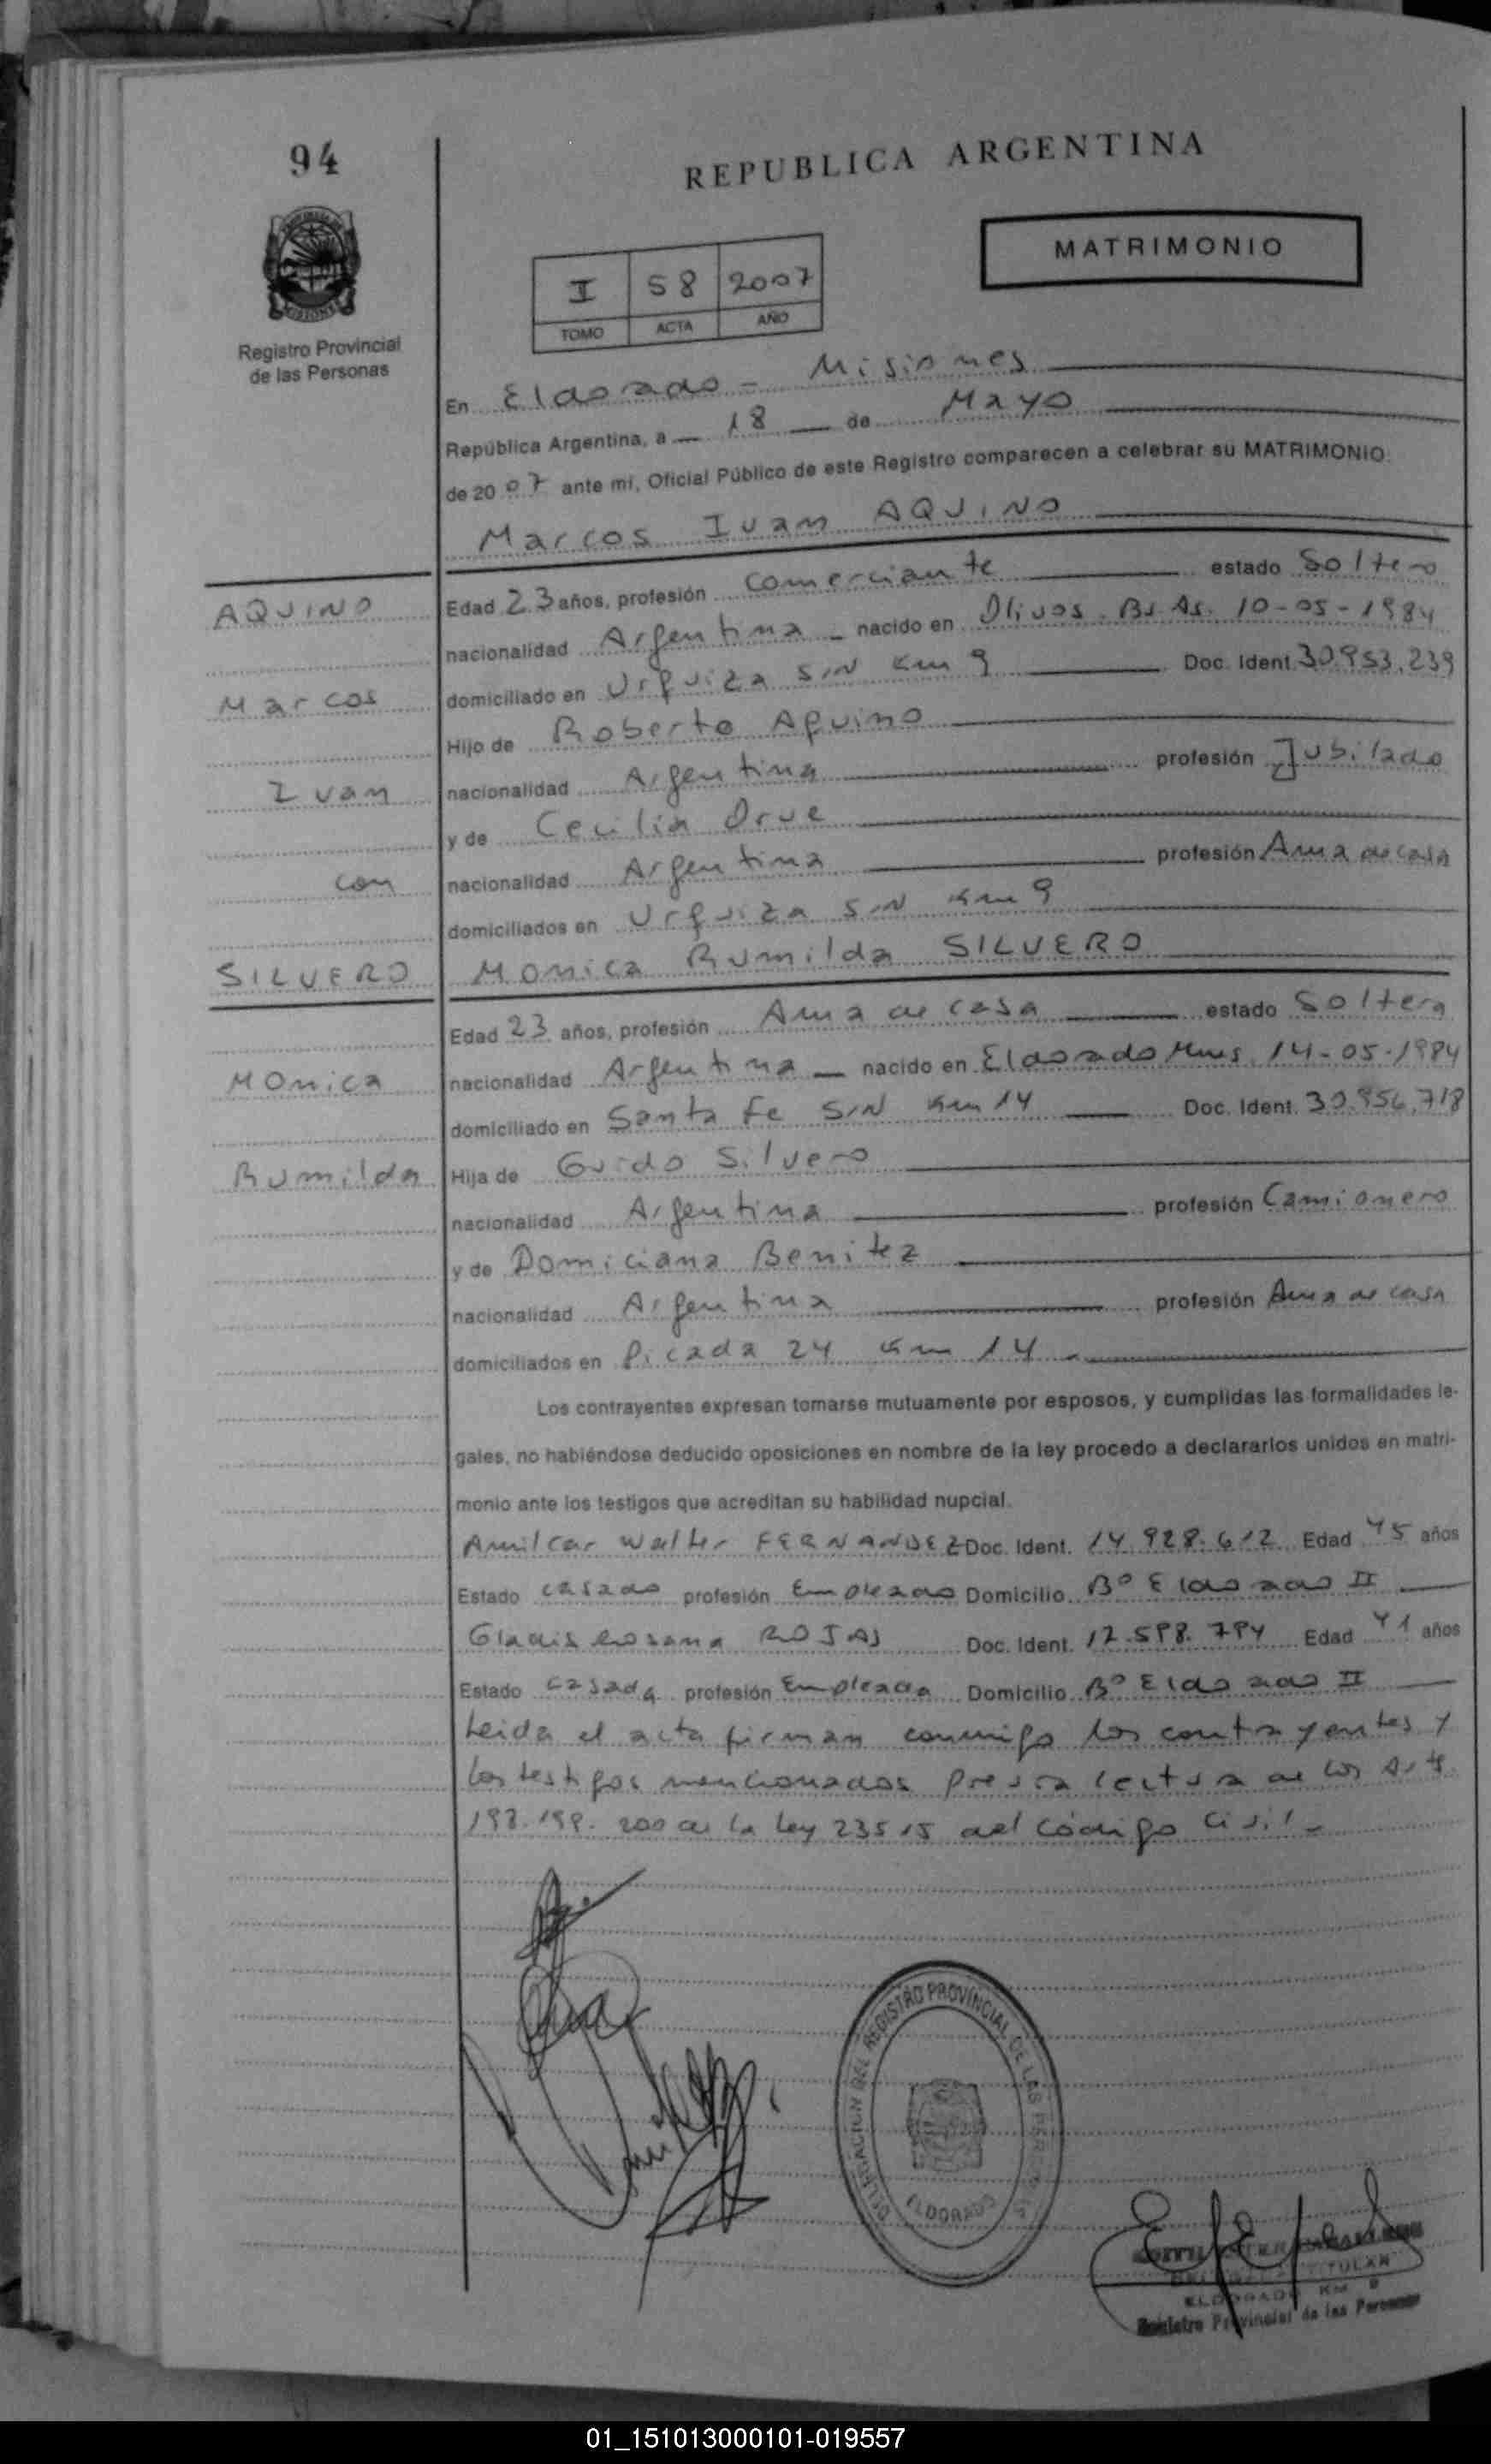 94
REPUBLICA ARGENTINA
MATRIMONIO
I 58 2007
TOMO ACTA AÑO
Registro Provincial
de las Personas
En Eldorado - Misiones
República Argentina, a 18 de Mayo
de 2007 ante mí, Oficial Público de este Registro comparecen a celebrar su MATRIMONIO:
Marcos Ivan AQUINO
AQUINO
Marcos
Ivan
con
SILVERO
Monica
Rumilda
Edad 23 años, profesión Comerciante estado Soltero
nacionalidad Argentina - nacido en Olivos. Bs. As. 10-05-1984
domiciliado en Urquiza S/N Km 9 Doc. Ident. 30.953.239
Hijo de Roberto Aquino
nacionalidad Argentina profesión Jubilado
y de Cecilia Orue
nacionalidad Argentina profesión Ama de casa
domiciliados en Urquiza S/N Km 9
Monica Rumilda SILVERO
Edad 23 años, profesión Ama de casa estado Soltera
nacionalidad Argentina - nacido en Eldorado Mnes. 14-05-1984
domiciliado en Santa Fe S/N Km 14 Doc. Ident. 30.956.718
Hija de Guido Silvero
nacionalidad Argentina profesión Camionero
y de Domiciana Benitez
nacionalidad Argentina profesión Ama de casa
domiciliados en Picada 24 Km 14
Los contrayentes expresan tomarse mutuamente por esposos, y cumplidas las formalidades le-
gales, no habiéndose deducido oposiciones en nombre de la ley procedo a declararlos unidos en matri-
monio ante los testigos que acreditan su habilidad nupcial.
Amilcar Walter FERNANDEZ Doc. Ident. 14.928.612 Edad 45 años
Estado casado profesión Empleado Domicilio Bº Eldorado II
Gladis Rosana ROJAS Doc. Ident. 17.598.794 Edad 41 años
Estado casada profesión Empleada Domicilio Bº Eldorado II
Leida el acta firman conmigo los contrayentes y
los testigos mencionados previa lectura de los Arts.
198.199. 200 de la Ley 23515 del Código Civil -
DELEGACION DEL REGISTRO PROVINCIAL DE LAS PERSONAS
ELDORADO
TITULAR
ELDORADO KM 9
Registro Provincial de las Personas
01_151013000101-019557